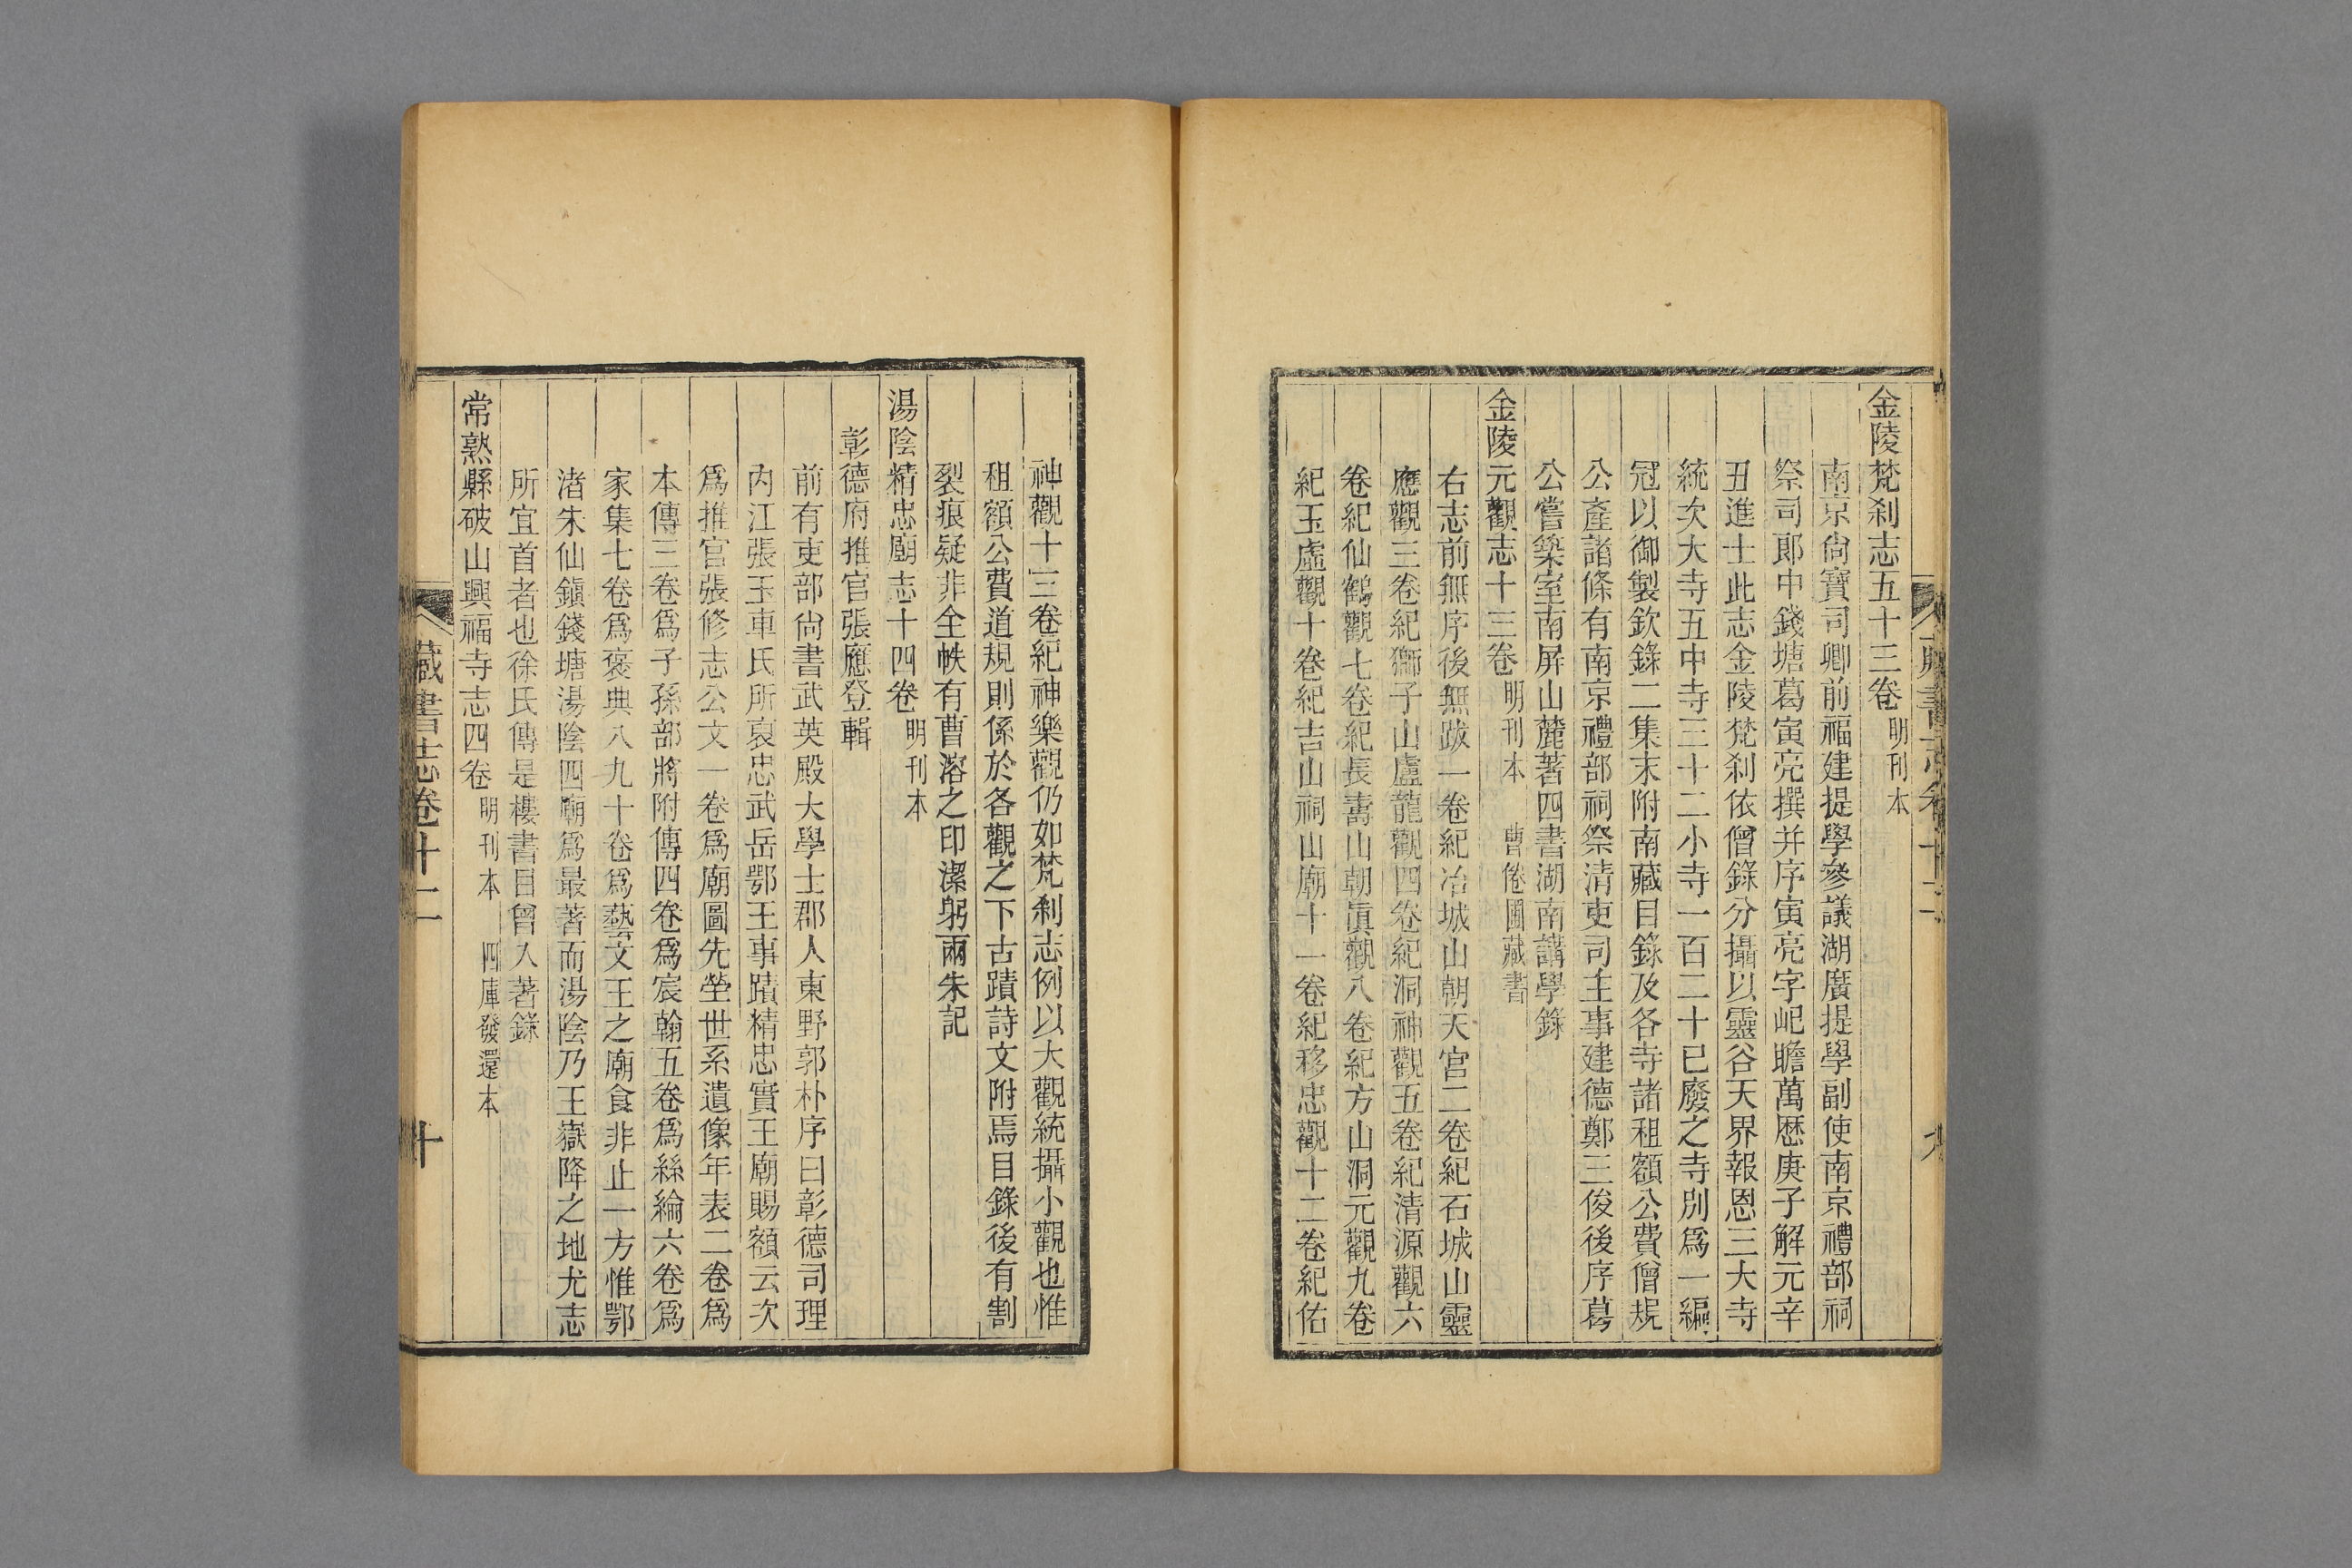 金陵梵刹志五十三卷 明刊本
南京尙寶司卿前福建提學參議湖廣提學副使南京禮部祠
祭司郎中錢塘葛寅亮撰并序寅亮字屺瞻萬歷庚子解元辛
丑進士此志金陵梵刹依僧錄分攝以靈谷天界報恩三大寺
統次大寺五中寺三十二小寺一百二十已廢之寺別爲一編
冠以御製欽錄二集末附南藏目錄及各寺諸租額公費僧規
公產諸條有南京禮部祠祭清吏司主事建德鄭三俊後序葛
公嘗築室南屏山麓著四書湖南講學錄
金陵元觀志十三卷 明刊本 曹倦圃藏書
右志前無序後無跋一卷紀冶城山朝天宮二卷紀石城山靈
應觀三卷紀獅子山盧龍觀四卷紀洞神觀五卷紀清源觀六
卷紀仙鶴觀七卷紀長壽山朝眞觀八卷紀方山洞元觀九卷
紀玉虛觀十卷紀吉山祠山廟十一卷紀移忠觀十二卷紀佑
神觀十三卷紀神樂觀仍如梵刹志例以大觀統攝小觀也惟
租額公費道規則係於各觀之下古蹟詩文附焉目錄後有割
裂痕疑非全帙有曹溶之印潔躬兩朱記
湯陰精忠廟志十四卷 明刊本
彰德府推官張應登輯
前有吏部尙書武英殿大學士郡人東野郭朴序曰彰德司理
内江張玉車氏所裒忠武岳鄂王事蹟精忠實王廟賜額云次
爲推官張修志公文一卷爲廟圖先塋世系遺像年表二卷爲
本傳三卷爲子孫部將附傳四卷爲宸翰五卷爲絲綸六卷爲
家集七卷爲褒典八九十卷爲藝文王之廟食非止一方惟鄂
渚朱仙鎭錢塘湯陰四廟爲最著而湯陰乃王嶽降之地尤志
所宜首者也徐氏傳是樓書目曾入著錄
常熟縣破山興福寺志四卷 明刊本 四庫發還本
藏書志卷十二
十